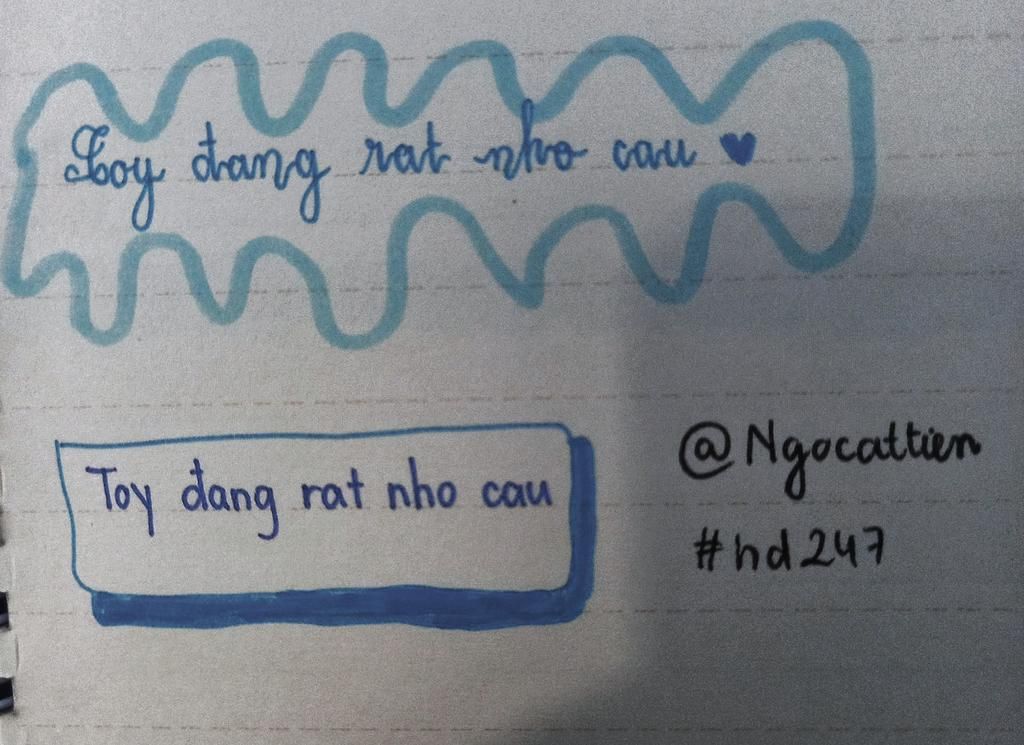 Toy đang rat nho cau ♥
Toy đang rat nho cau
@Ngocattien
#hd247